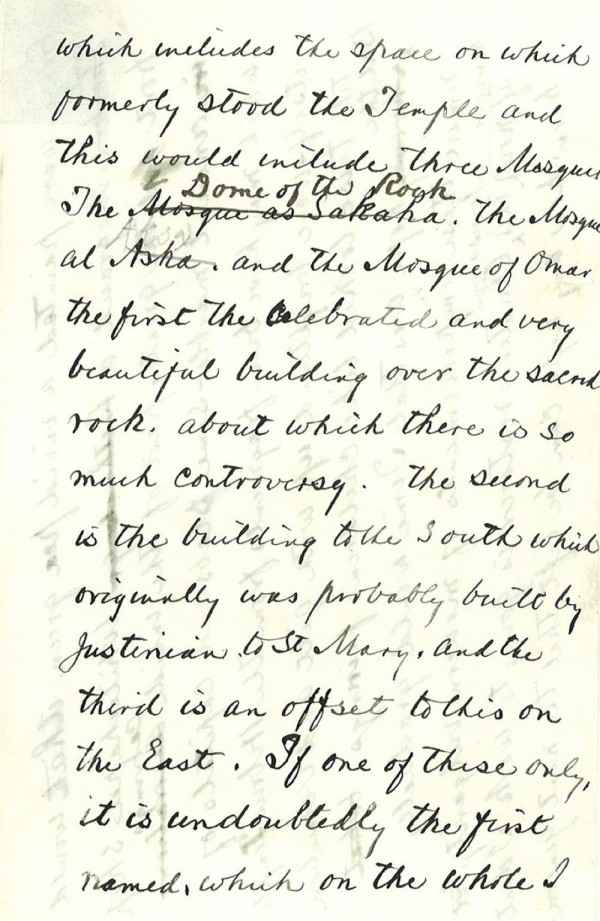 which includes the space on which
formerly stood the Temple and
this would include three Mosques
Dome of the Rock
The Mosque as Sakaha. The Mosque
al Aska. and the Mosque of Omar
the first the Celebrated and very
beautiful building over the sacred
rock. about which there is so
much controversy. The second
is the building to the South which
originally was probably built by
Justinian to St Mary. and the
third is an offset to this on
the East. If one of these only,
it is undoubtedly the first
named, which on the whole I